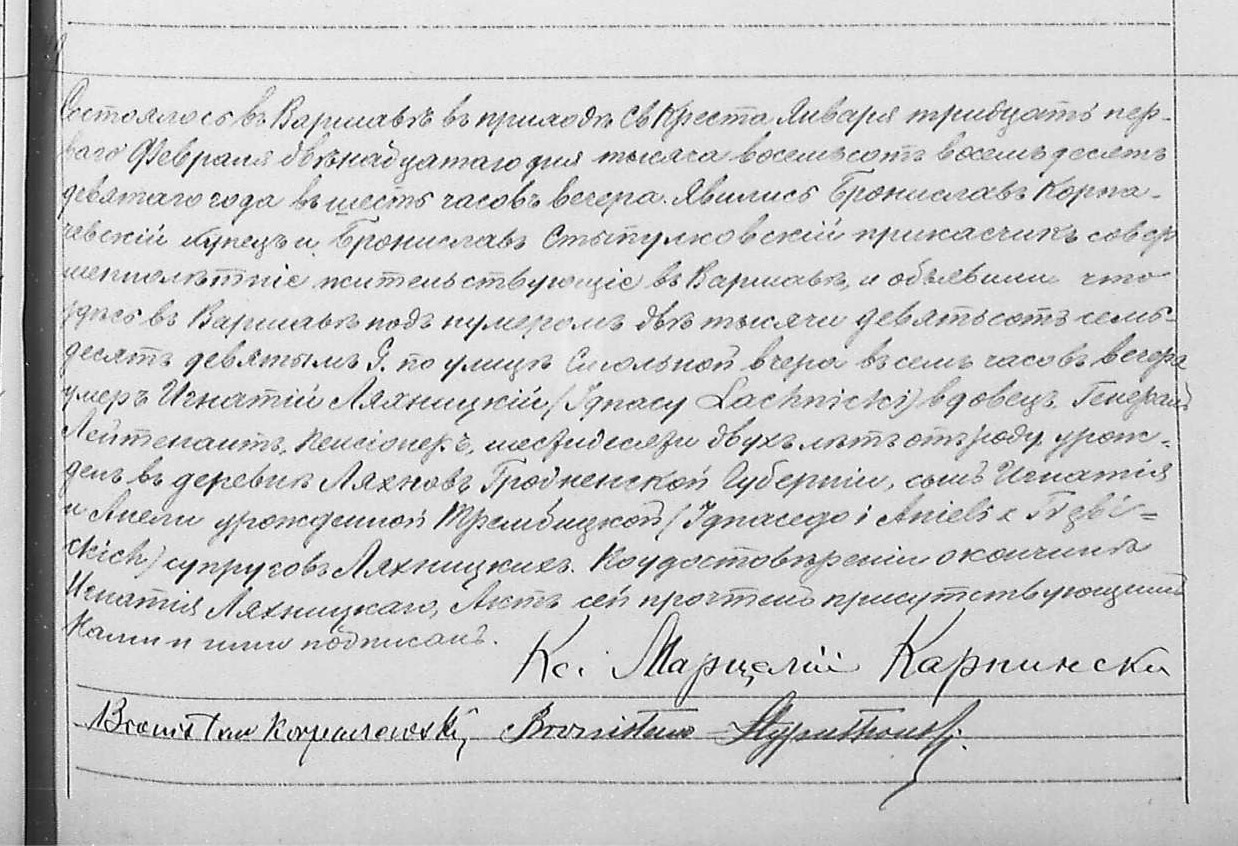 Состоялось въ Варшавѣ въ приходѣ Св Креста Января тридцать пер-
ваго Февраля двѣнадцатаго дня тысяча восемьсотъ восемьдесятъ
девятаго года въ шесть часовъ вечера. Явились Брониславъ Корпа-
чевскій купецъ и Брониславъ Стыпулковскій прикасчикъ совер
шеннолѣтніе жительствующіе въ Варшавѣ, и объявили что
здѣсь въ Варшавѣ подъ нумеромъ двѣ тысячи девятьсотъ семь-
десятъ девятымъ по улицѣ вчера въ семь часовъ вечера
умеръ Игнатій Ляхницкій (Ignacy Lachnicki) вдовецъ, Генералъ
Лейтенантъ, пенсіонеръ, шестидесяти двухъ лѣтъ отъ роду, урож-
денъ въ деревнѣ Ляхновъ Гродненской Губерніи, сынъ Игнатія
и Анели урожденной Трембицкой (Ignacego i Anieli z Trębi=
ckich) супруговъ Ляхницкихъ. По удостовѣреніи о кончинѣ
Игнатія Ляхницкаго, Актъ сей прочтенъ присутствующимъ
Нами и ими подписанъ.
Кс. Марцелій Карпински
Bronisław Korpaczewski Bronisław Stypułkowski.